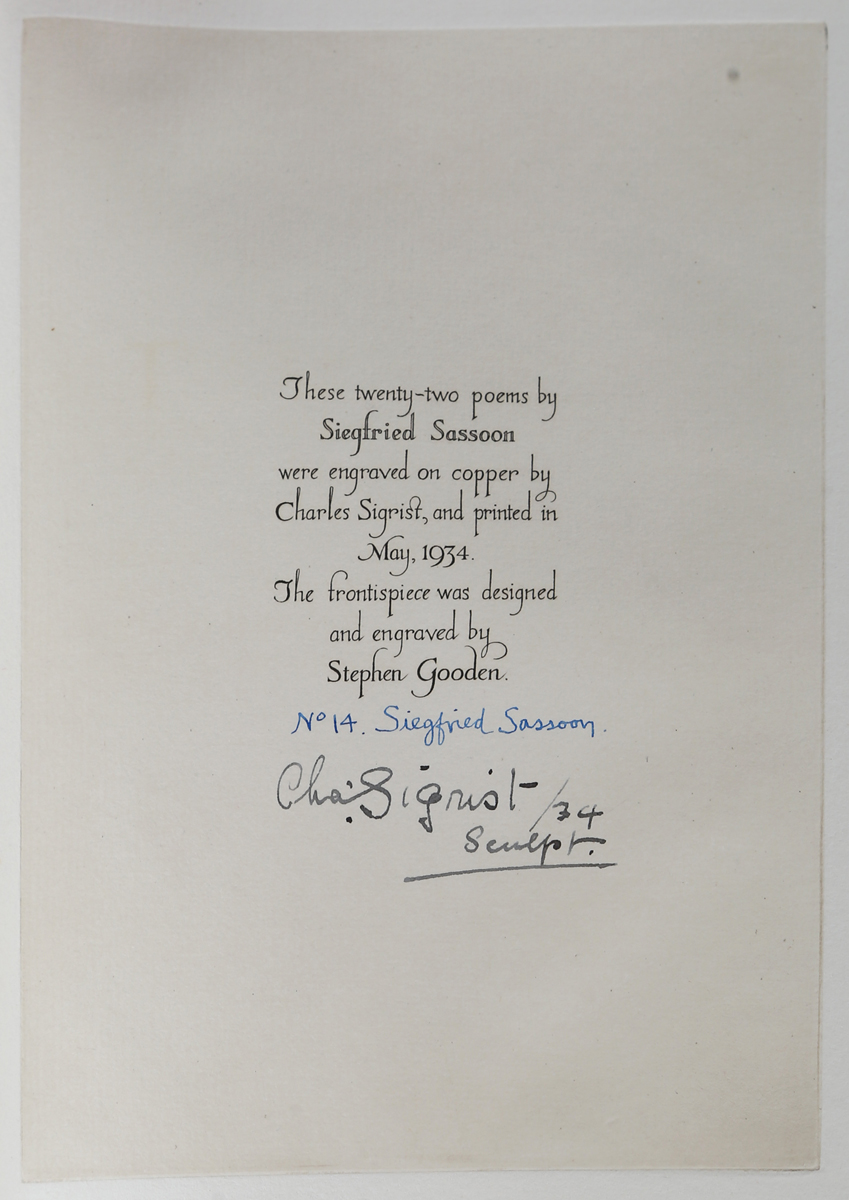 These twenty-two poems by
Siegfried Sassoon
were engraved on copper by
Charles Sigrist, and printed in
May, 1934.
The frontispiece was designed
and engraved by
Stephen Gooden.
Nº 14. Siegfried Sassoon.
Chas. Sigrist /34
Sculpt.